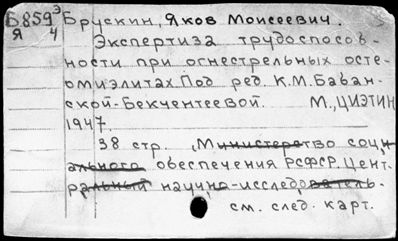 Б859 Э Брускин, Яков Моисеевич.
Я 4
Экспертиза трудоспособ-
ности при огнестрельных осте-
омиэлитах Под ред. К.М. Баван-
ской-Бекчентеевой. М., ЦИЭТИН
1947.
38 стр. (Министерство соци-
ального обеспечения РСФСР. Цент-
ральный научно-исследователь-
см. след. карт.